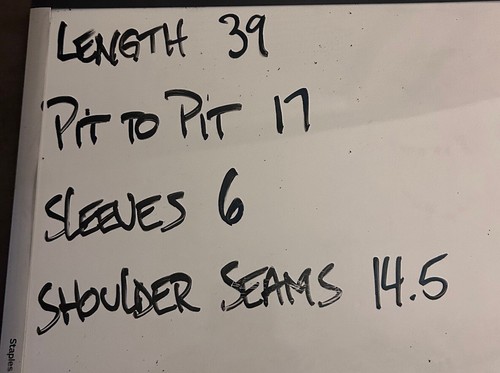 LENGTH 39
PIT TO PIT 17
SLEEVES 6
SHOULDER SEAMS 14.5
Staples